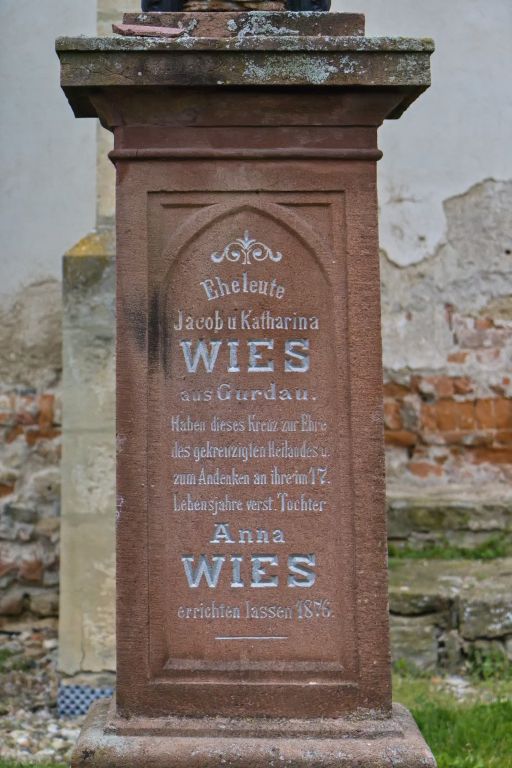 Eheleute
Jacob u Katharina
WIES
aus Gurdau.
Haben dieses Kreuz zur Ehre
des gekreuzigten Heilandes u.
zum Andenken an ihre im 17.
Lebensjahre verst. Tochter
Anna
WIES
errichten lassen 1876.